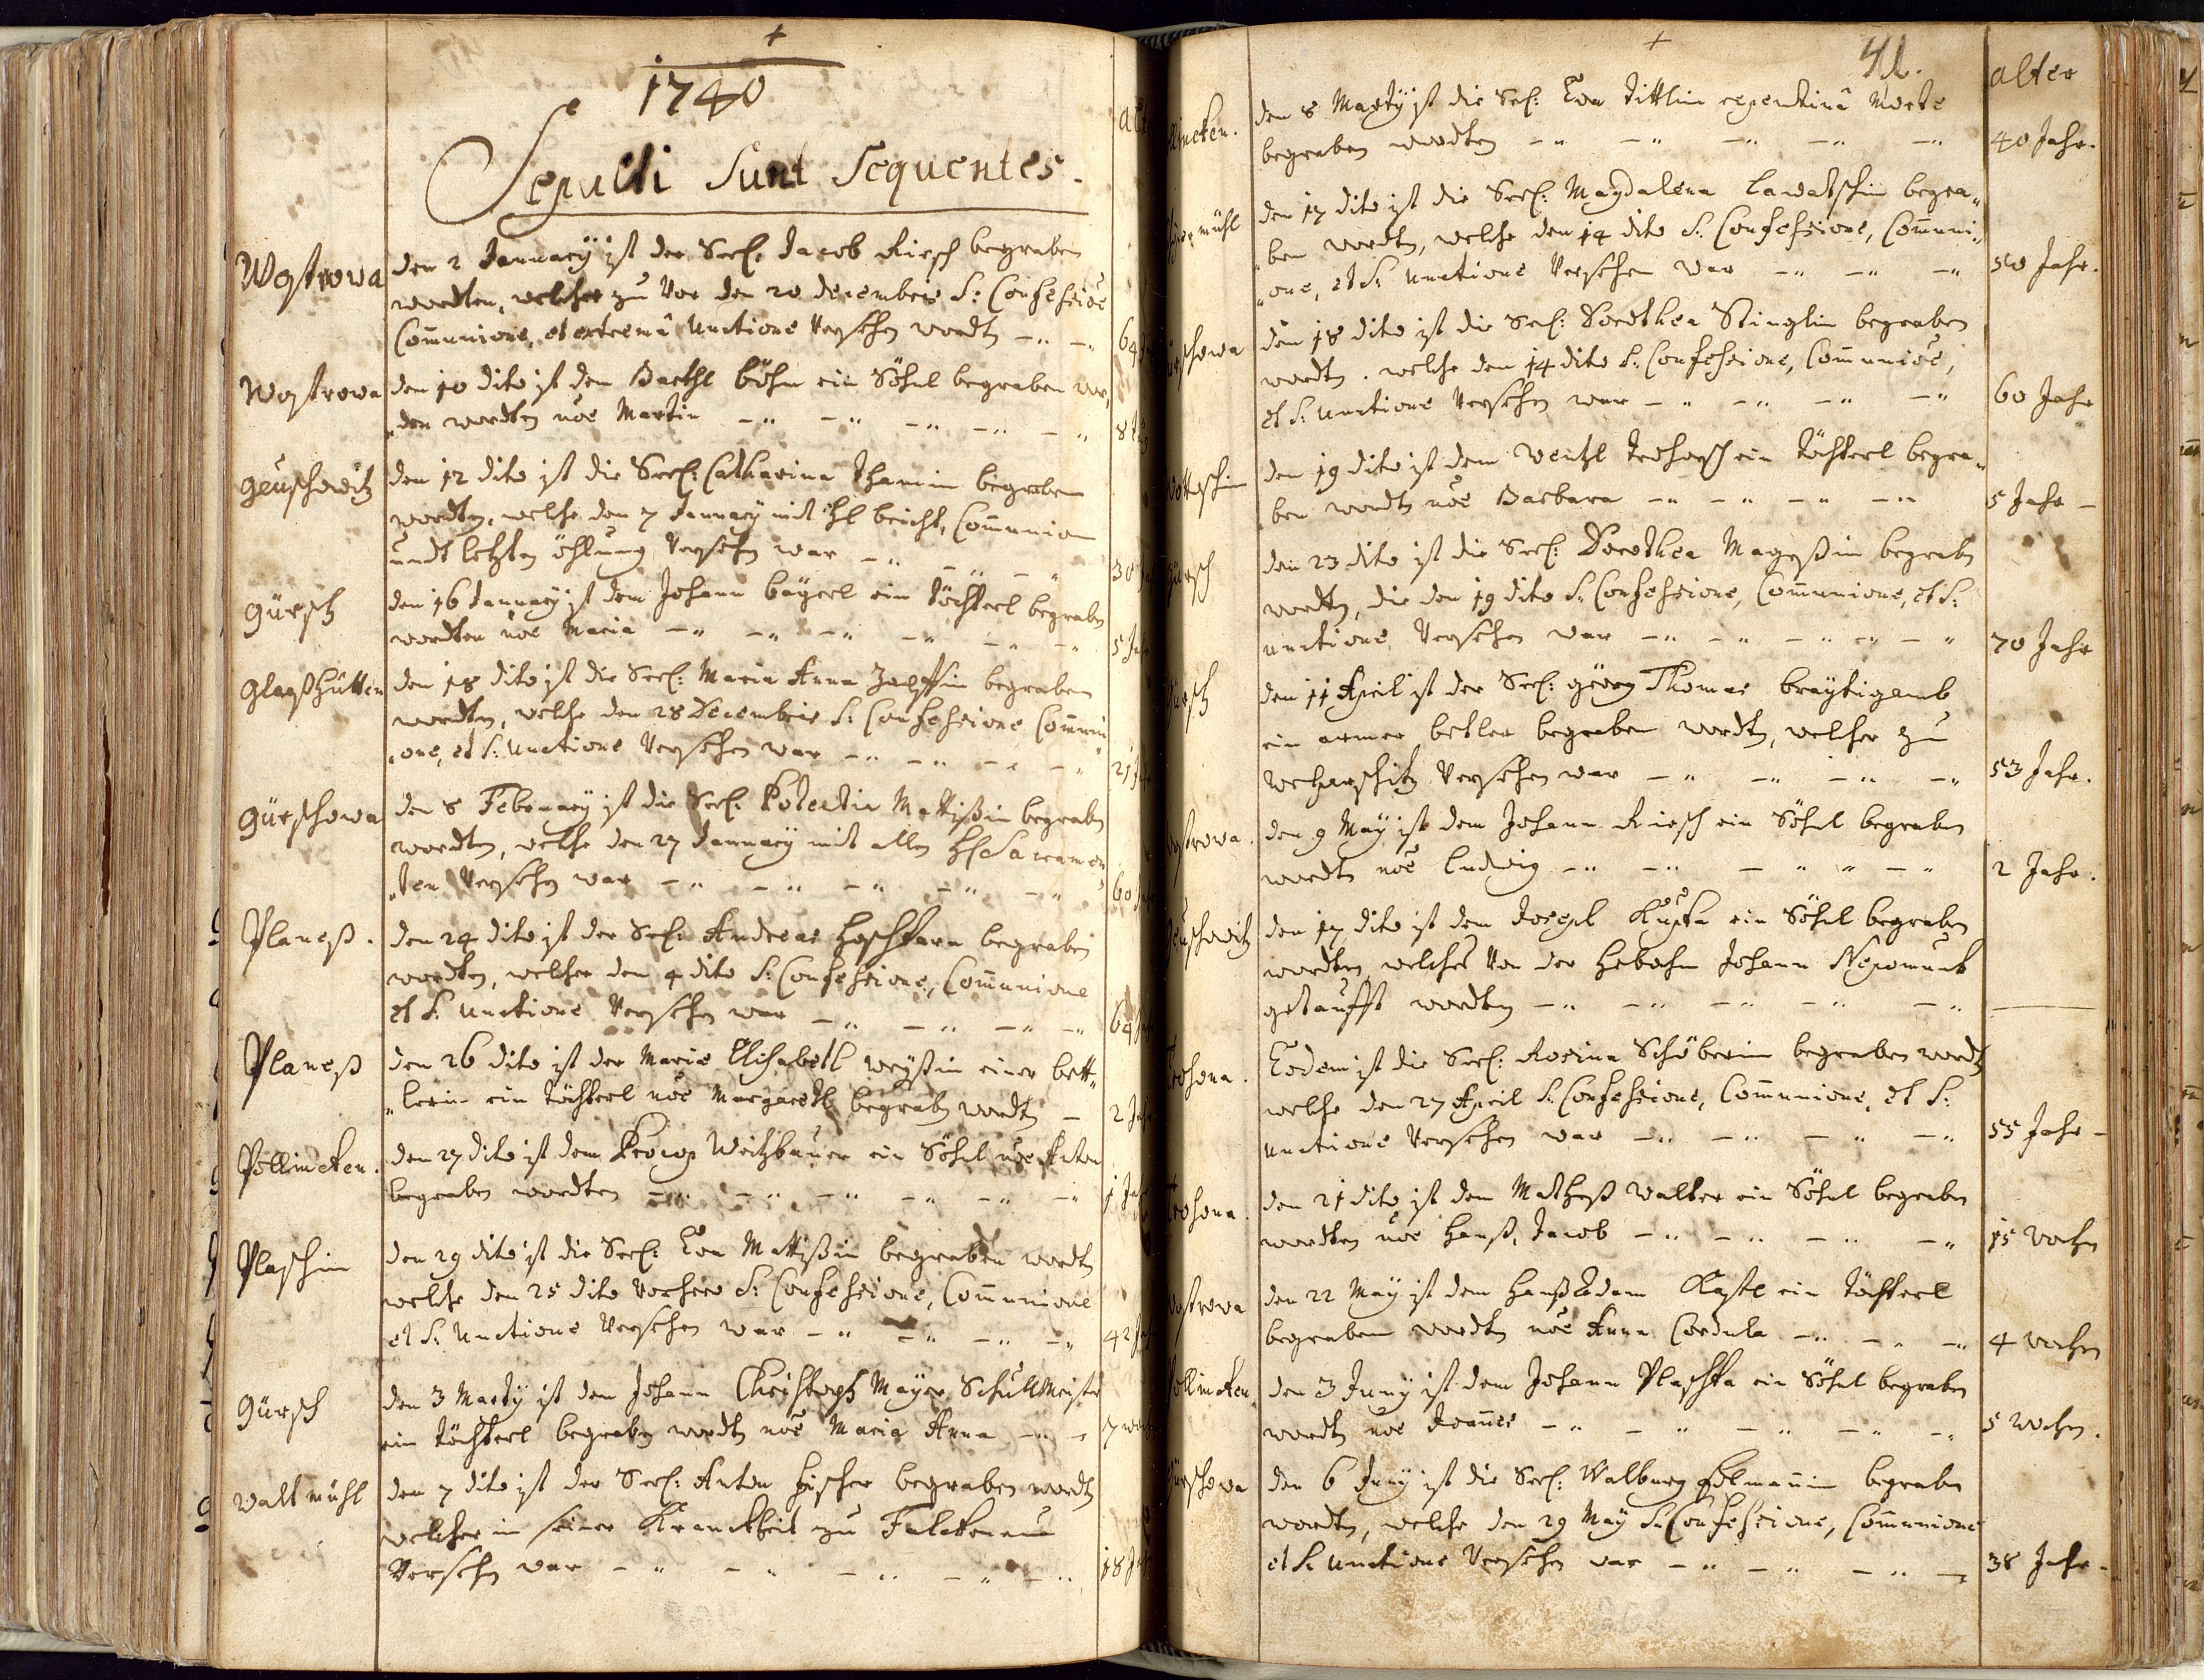 1740
Sepulti Sunt Sequentes.
alter
Wostrowa
den 2 January ist der Seel: Jacob Riesch begraben
wordten, welcher zu Vor den 20 decembris S: Confessioe
Com̄unione, et extrema Unctione Versehen wordt 64
Wostrowa
den 10 dito ist dem Barthl böhm ein Söhnl begraben wor„
„den wordten noe Martin 8
den 12 dito ist die Seel: Catharina begraben
wordten, welche den 7 January mit Hl beicht, Com̄union
undt letzten öhlung Versehen war 30
Gürsch
den 16 January ist dem Johann bäyerl ein Töchterl begraben
wordten noe Maria 5 Jahr
Glaßhütten
den 18 dito ist die Seel: Maria Anna begraben
wordten, welche den 28 Decembris S: Confessione Com̄uni
„one, et S: Unctione Versehen war 21
Gürschowa
den 8 February ist die Seel: Mattißin begraben
wordten, welche den 27 January mit allen Hl Sacramen
„ten Versehen war 60
Planeß.
den 24 dito ist der Seel: Andreas begraben
wordten, welcher den 4 dito S: Confessione, Com̄unione
et S: Unctione Versehen war 64
Planeß
den 26 dito ist der Maria Elisabeth weyßin einer bett„
„lerin ein Töchterl noe Margareth begraben wordten 2 Jahr
Pollincken.
den 27 dito ist dem Procop Weitzbauer ein Söhnl noe Anton
begraben wordten 1 Jahr
Plaschin
den 29 dito ist die Seel: Eva Mattißin begraben wordten
welche den 25 dito Vorhero S: Confessione, Com̄unione
et S: Unctione Versehen war 42
Gürsch
den 3 Marty ist dem Johann Christoph Mayer Schullmeister
ein Töchterl begraben wordten noe Maria Anna 7
Waltmühl
den 7 dito ist der Seel: Anton Fischer begraben wordten
welcher in seiner Kranckheit zu Falckenau
Versehen war 18
41.
alter
den 8 Marty ist die Seel: Eva Tittlin repentina Morte
begraben wordten 40 Jahr.
den 17 dito ist die Seel: Magdalena Lawatschin begra„
„ben wordten, welche den 14 dito S: Confessione, Com̄uni„
„one, et S: Unctione Versehen war 50 Jahr.
den 18 dito ist die Seel: Dorothea Stinglin begraben
wordten. welche den 14 dito S: Confessione, Com̄unioe,
et S: Unctione Versehen war 60 Jahr
den 19 dito ist dem Wentzl ein Töchterl begra„
ben wordten noe Barbara 5 Jahr
den 23 dito ist die Seel: Dorothea begraben
wordten, die den 19 dito S: Confessione, Com̄unione, et S:
unctione Versehen war 70 Jahr
den 11 April ist der Seel: Georg Thomas bräytigamb
ein armer betler begraben wordten, welcher zu
Versehen war 53 Jahr.
den 9 May ist dem Johann Riesch ein Söhnl begraben
wordten noe Ludwig 2 Jahr.
den 17 dito ist dem Joseph Kupka ein Söhnl begraben
wordten, welches Von der Hebahm Johann Nepomuck
getaufft wordten
Eodem ist die Seel: Rosina Schöberin begraben wordten
welche den 27 April S: Confessione, Com̄unione, et S:
unctione Versehen war 55 Jahr
den 21 dito ist dem Matheß Walter ein Söhnl begraben
wordten noe Hanß Jacob 15 wochen
den 22 May ist dem Hanß Adam Kastl ein Töchterl
begraben wordten noe Anna Cordula 4 wochen
den 3 Juny ist dem Johann Plaschka ein Söhnl begraben
wordten noe Joan̄es 5 wochen.
den 6 Juny ist die Seel: Walburg begraben
wordten, welche den 29 May S: Confessione, Com̄unione
et S: Unctione Versehen war 38 Jahr